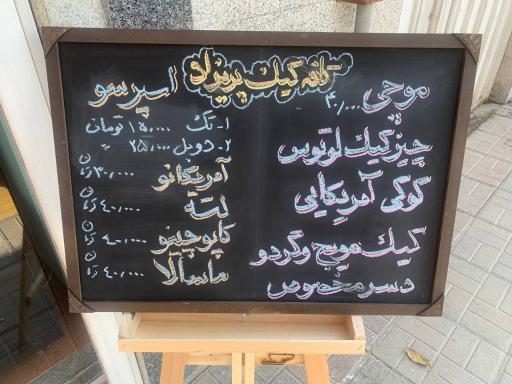 کافه کیک پریزاد
موجی
۴۰/۰۰۰
چیز کیک لوتوس
کوکی آمریکایی
کیک هویج و گردو
دسر مخصوص
اسپرسو
۱- تک ۱۵/۰۰۰ تومان
۲- دوبل ۲۵/۰۰۰
آمریکانو ۳۰/۰۰۰
لته ۴۰/۰۰۰
کاپوچینو ۴۰/۰۰۰
ماسالا ۴۰/۰۰۰